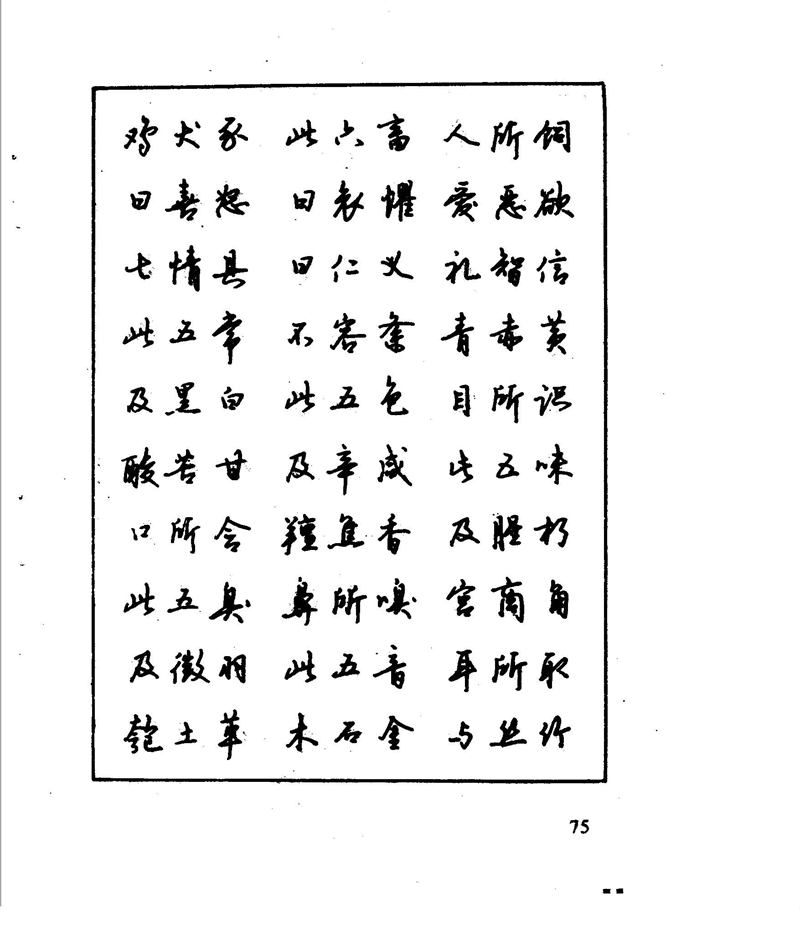 鸡犬豕 此六畜 人所饲
曰喜怒 曰哀惧 爱恶欲
七情具 曰仁义 礼智信
此五常 不容紊 青赤黄
及黑白 此五色 目所识
酸苦甘 及辛咸 此五味
口所含 羶焦香 及腥朽
此五臭 鼻所嗅 宫商角
及徵羽 此五音 耳所取
匏土革 木石金 与丝竹
75